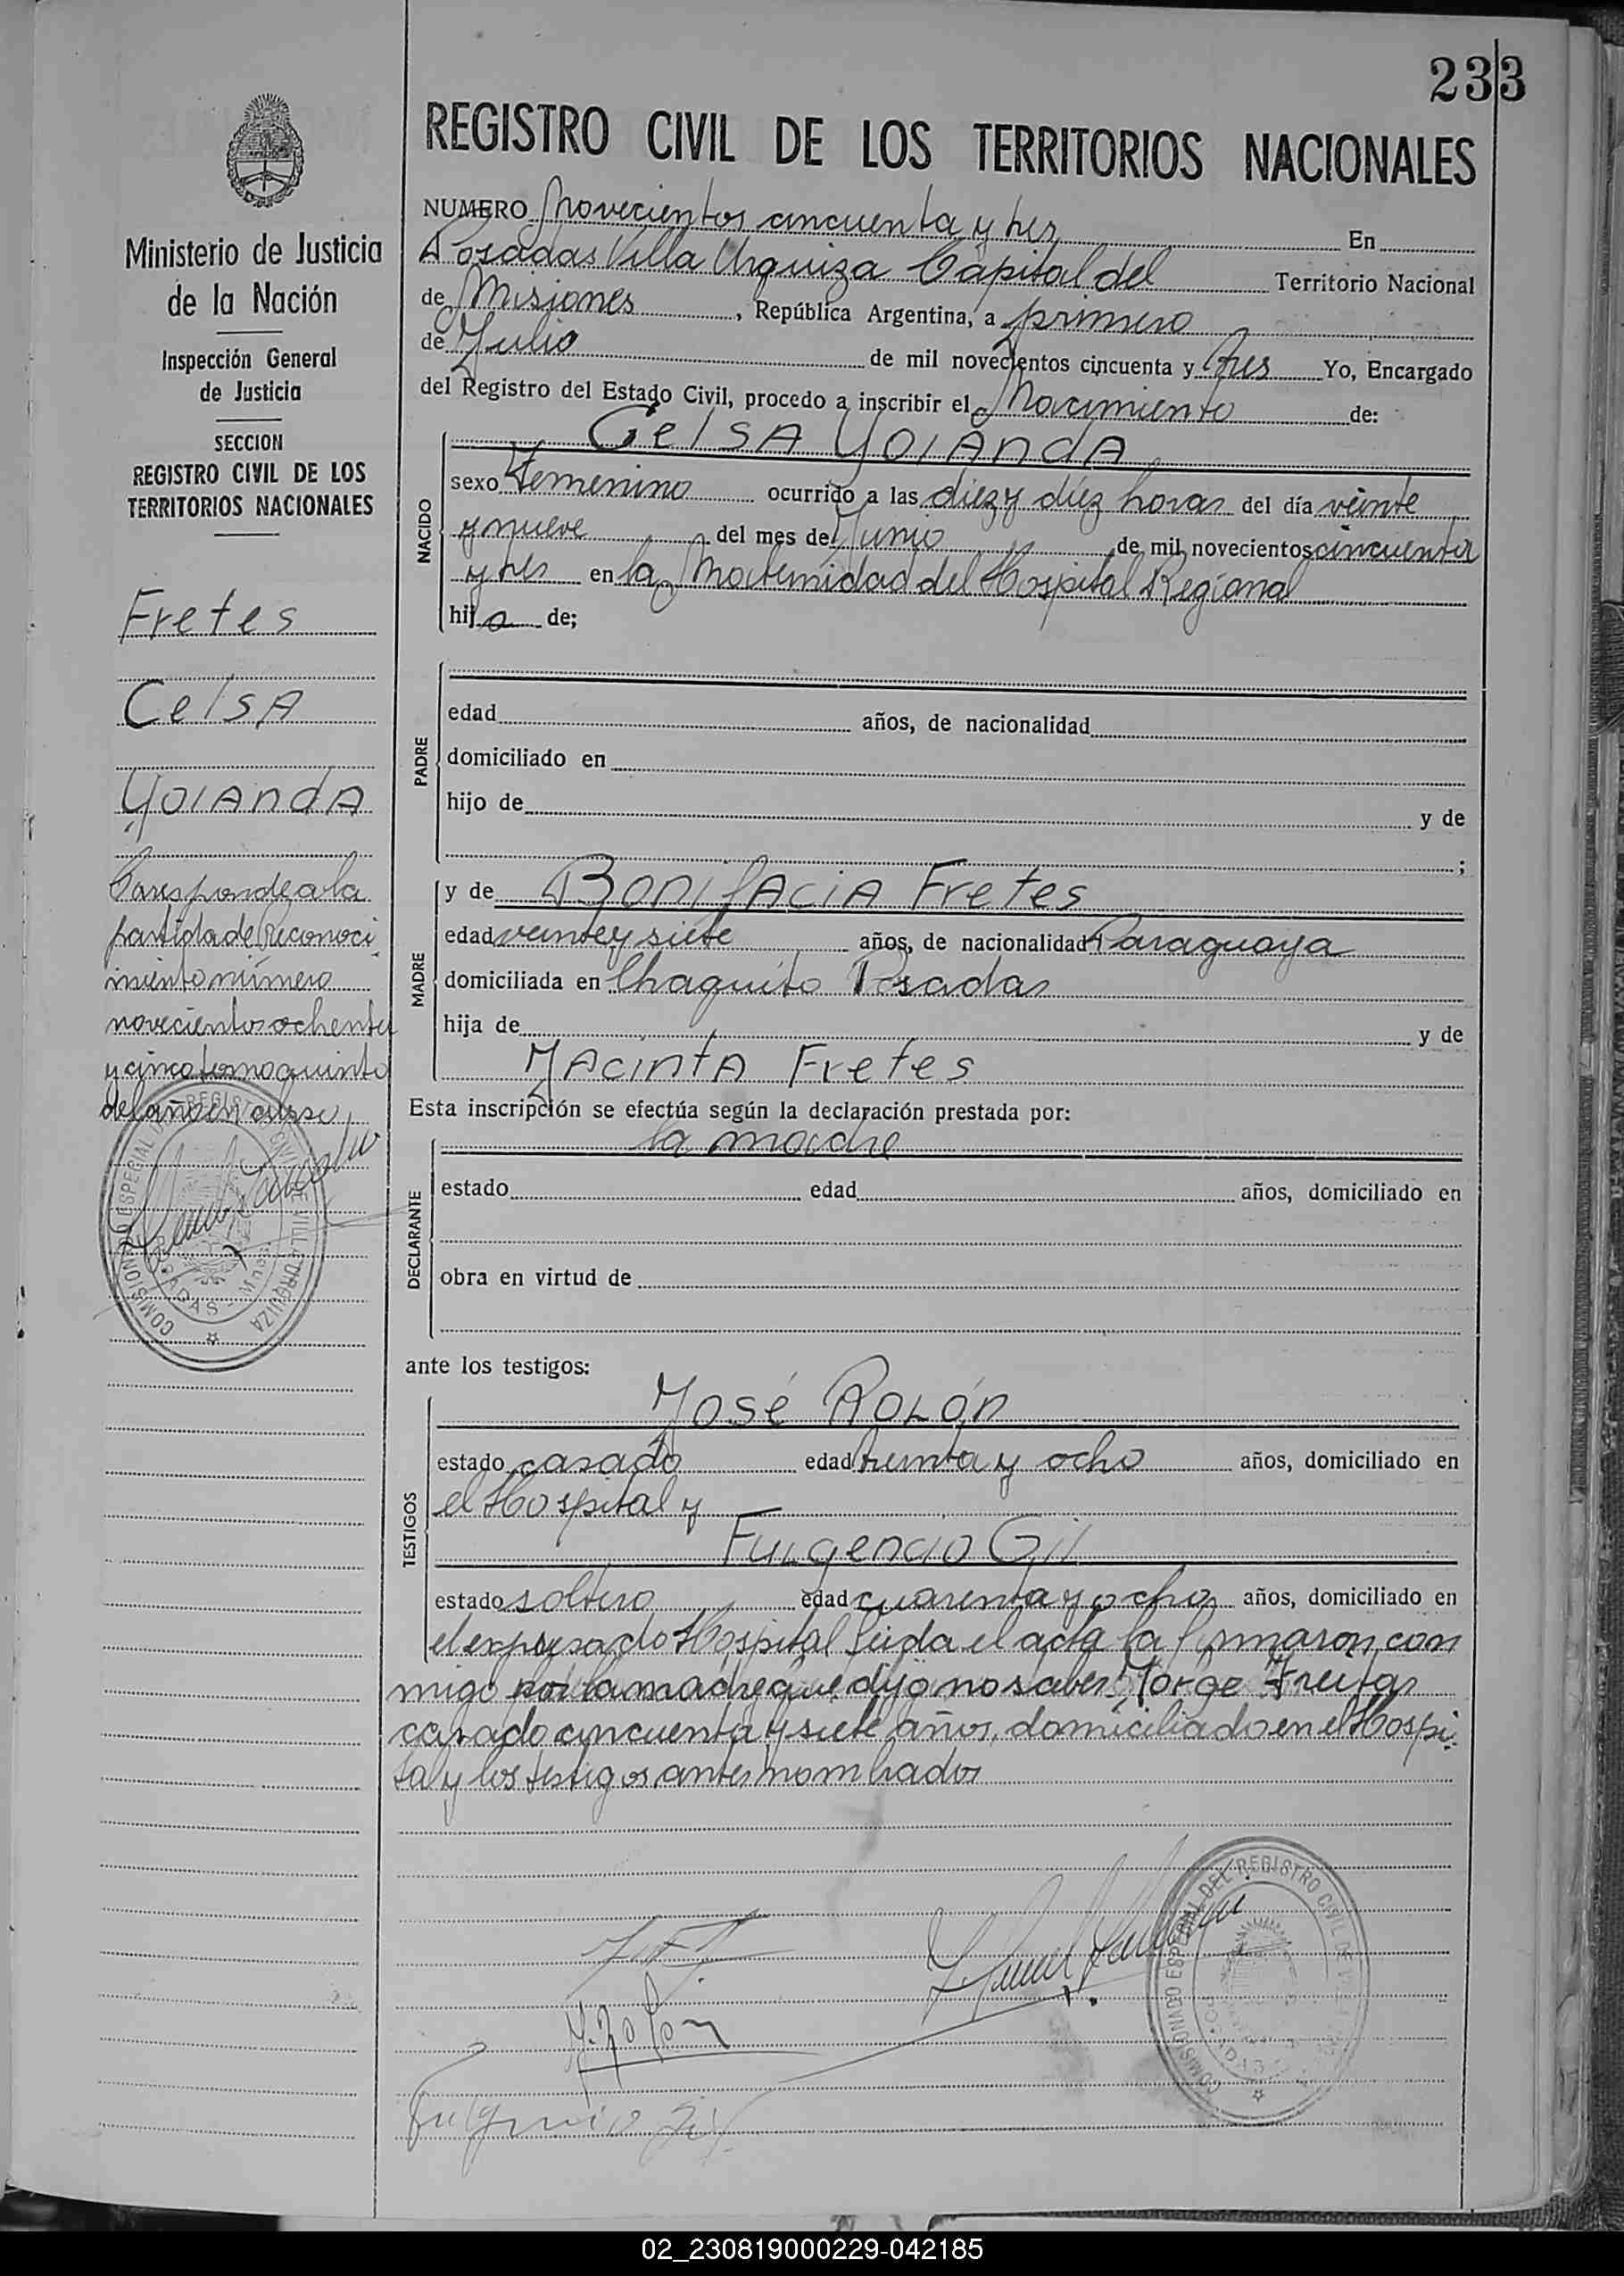 233
REGISTRO CIVIL DE LOS TERRITORIOS NACIONALES
Ministerio de Justicia
de la Nación
Inspección General
de Justicia
SECCION
REGISTRO CIVIL DE LOS
TERRITORIOS NACIONALES
Fretes
Celsa
Yolanda
Corresponde a la
partida de Reconoci
miento número
novecientos ochenta
y cinco tomo quinto
del año en curso
NUMERO Novecientos cincuenta y tres En
Posadas Villa Urquiza Capital del Territorio Nacional
de Misiones, República Argentina, a primero
de Julio de mil novecientos cincuenta y tres Yo, Encargado
del Registro del Estado Civil, procedo a inscribir el Nacimiento de:
NACIDO
Celsa Yolanda
sexo Femenino ocurrido a las diez y diez horas del día veinte
y nueve del mes de Junio de mil novecientos cincuenta
y tres en la Maternidad del Hospital Regional
hija de;
PADRE
edad años, de nacionalidad
domiciliado en
hijo de y de
;
MADRE
y de Bonifacia Fretes
edad veinte y siete años, de nacionalidad Paraguaya
domiciliada en Chaquito Posadas
hija de y de
Jacinta Fretes
Esta inscripción se efectúa según la declaración prestada por:
DECLARANTE
la madre
estado edad años, domiciliado en
obra en virtud de
ante los testigos:
TESTIGOS
José Rolón
estado casado edad treinta y ocho años, domiciliado en
el Hospital y
Fulgencio Gil
estado soltero edad cuarenta y ocho años, domiciliado en
el expresado Hospital leida el acta la firmaron con
migo por la madre que dijo no saber Jorge Freitas
casado cincuenta y siete años, domiciliado en el Hospi
tal y los testigos antes nombrados
J. Rolon
Fulgencio Gil
COMISIONADO ESPECIAL DEL REGISTRO CIVIL DE VILLA URQUIZA
POSADAS - Mnes
COMISIONADO ESPECIAL DEL REGISTRO CIVIL DE VILLA
02_230819000229-042185